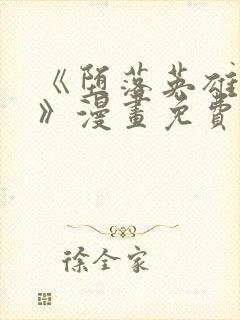 《堕落英雄
》漫畫免費
徐全家